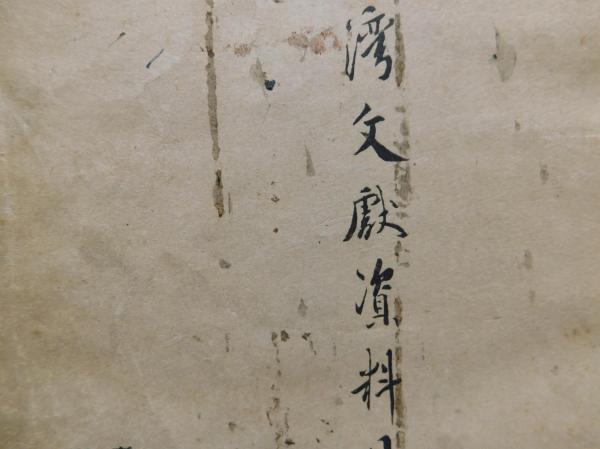 湾文獻資料